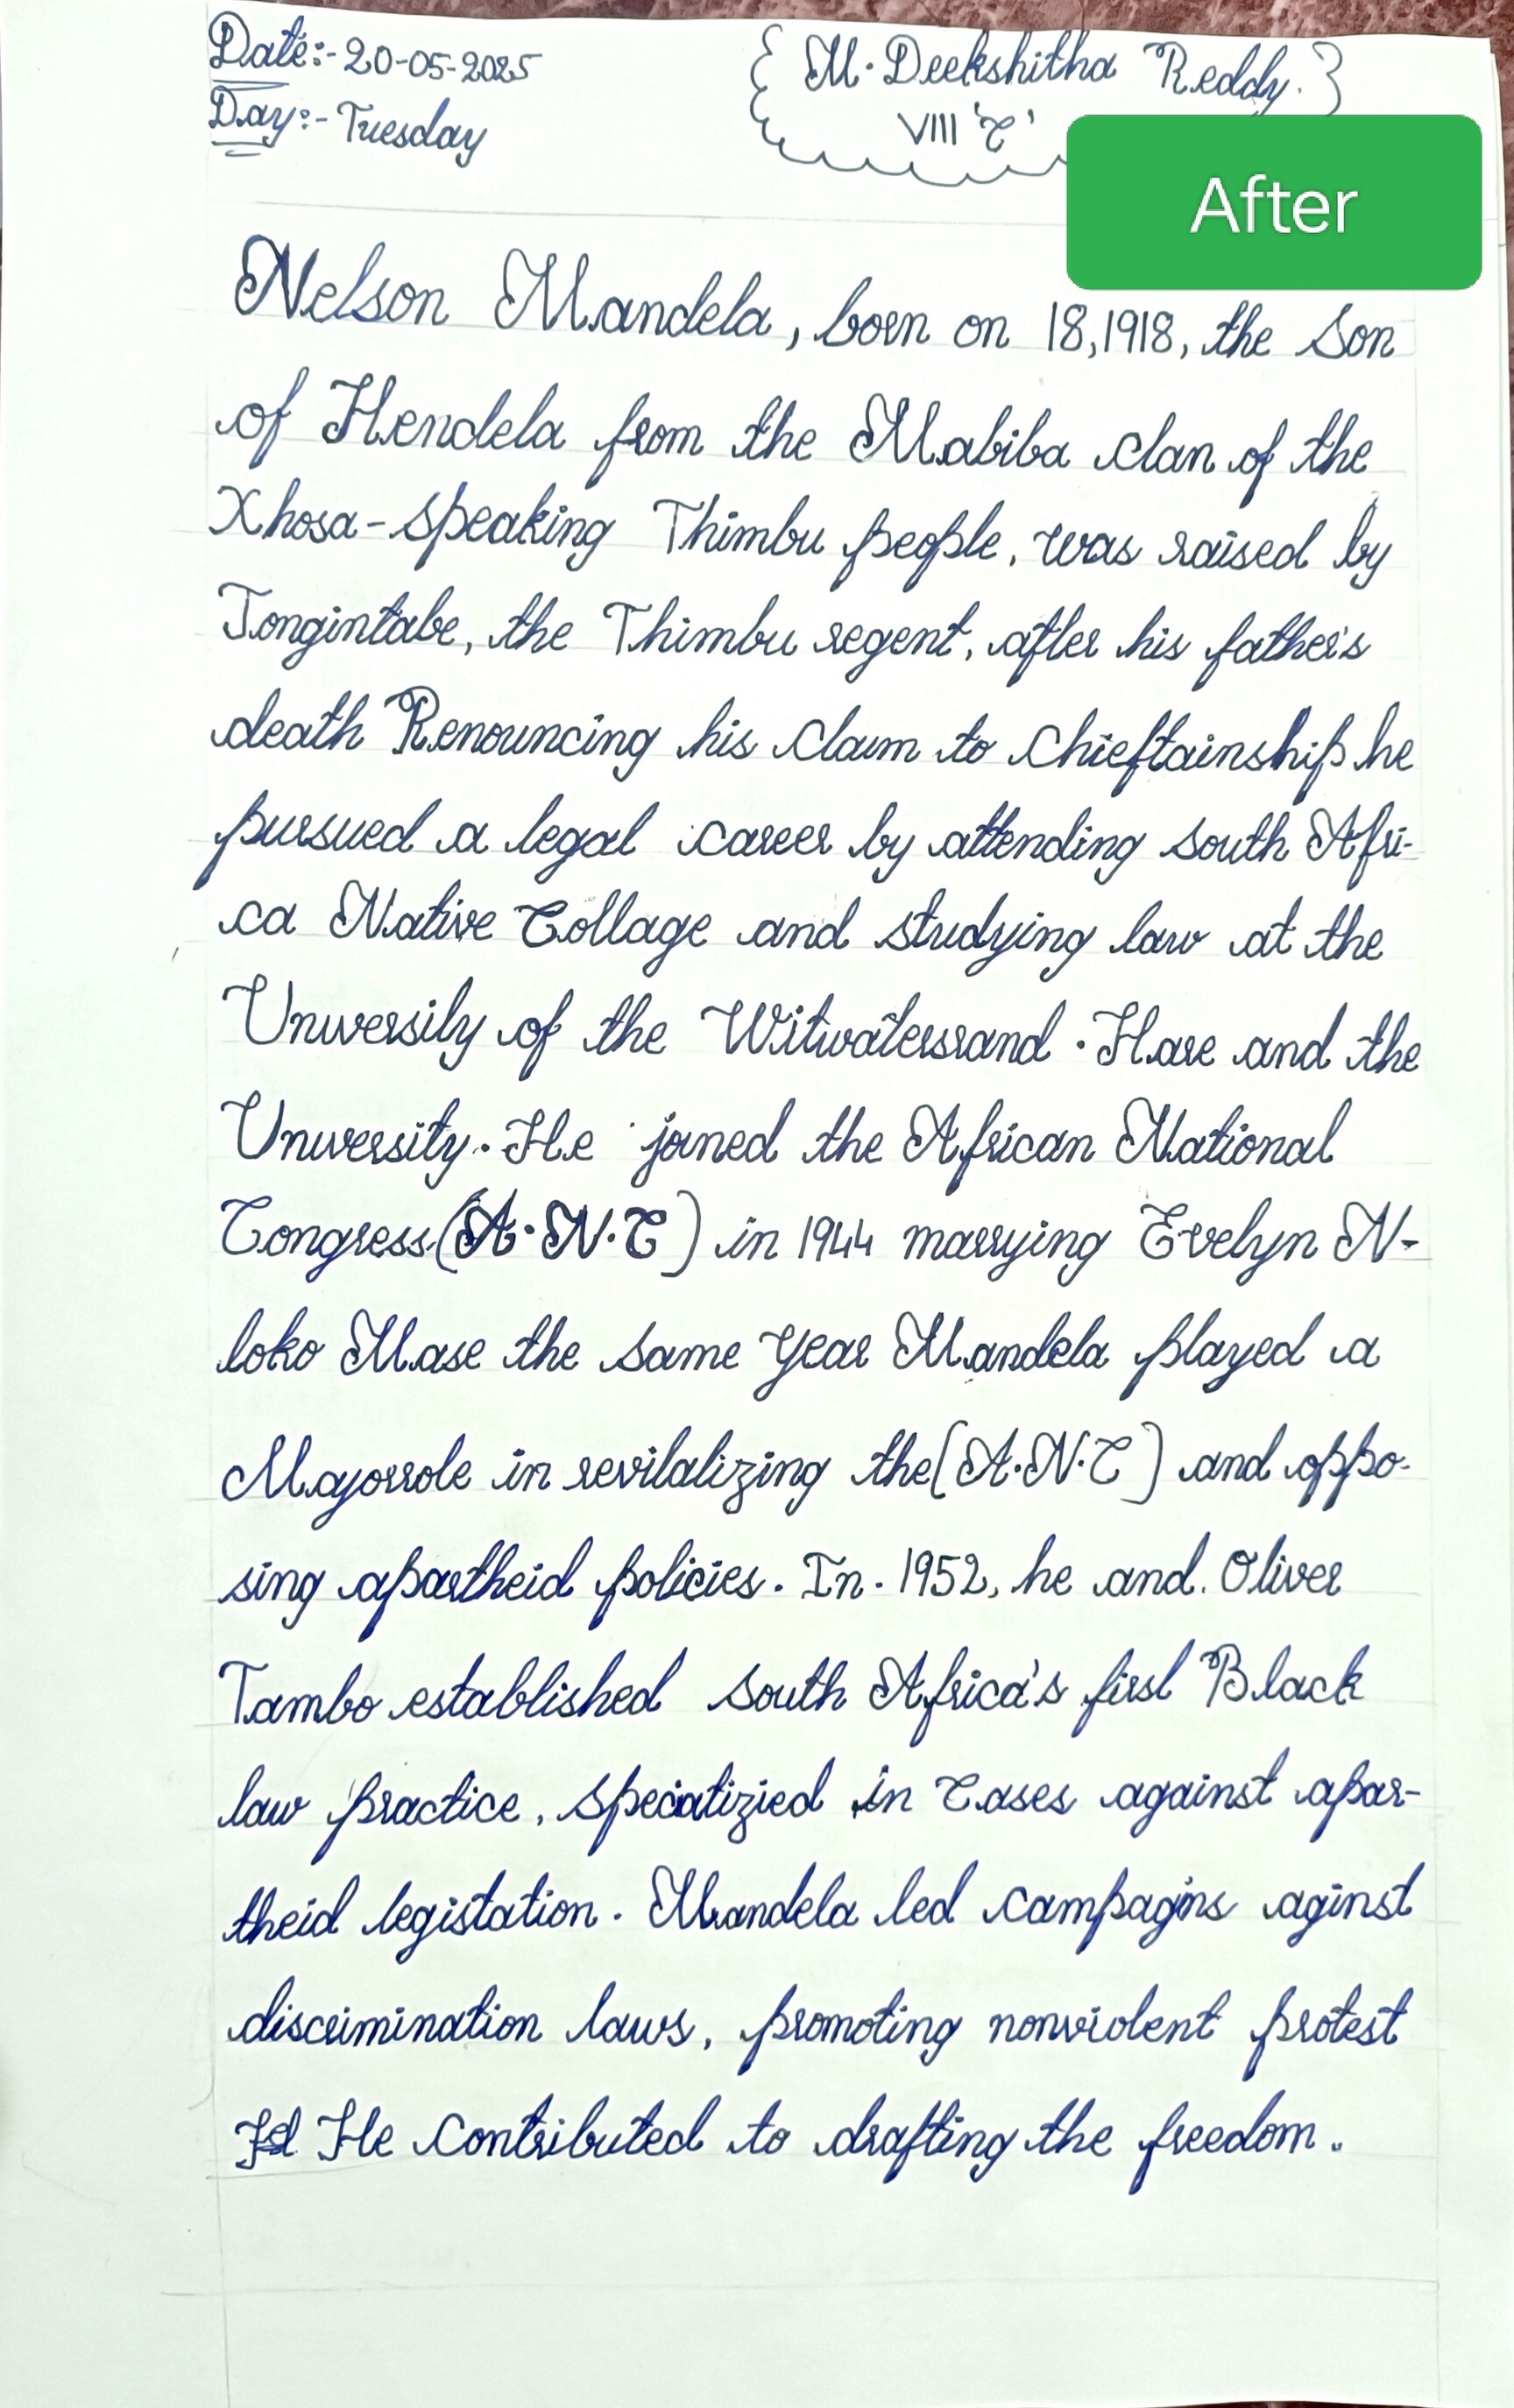 Date:- 20-05-2025
Day:- Tuesday
{ M. Deekshitha Reddy. }
VIII 'C'
After
Nelson Mandela, born on 18,1918, the son
of Hendela from the Mabiba clan of the
Xhosa-speaking Thimbu people, was raised by
Jongintabe, the Thimbu regent, after his father's
death Renouncing his claim to chieftainship he
pursued a legal career by attending south Afri-
ca Native Collage and studying law at the
University of the Witwatersrand. Hare and the
University. He joined the African National
Congress (A.N.C) in 1944 marrying Evelyn N-
loko Mase the same year Mandela played a
Mayorrole in revilalizing the (A.N.C) and oppo-
sing apartheid policies. In. 1952, he and. Oliver
Tambo established south Africa's first Black
law practice, speciatizied in Cases against apar-
theid legistation. Mandela led campagins aginst
discrimination laws, promoting nonviolent protest
He contributed to drafting the freedom.